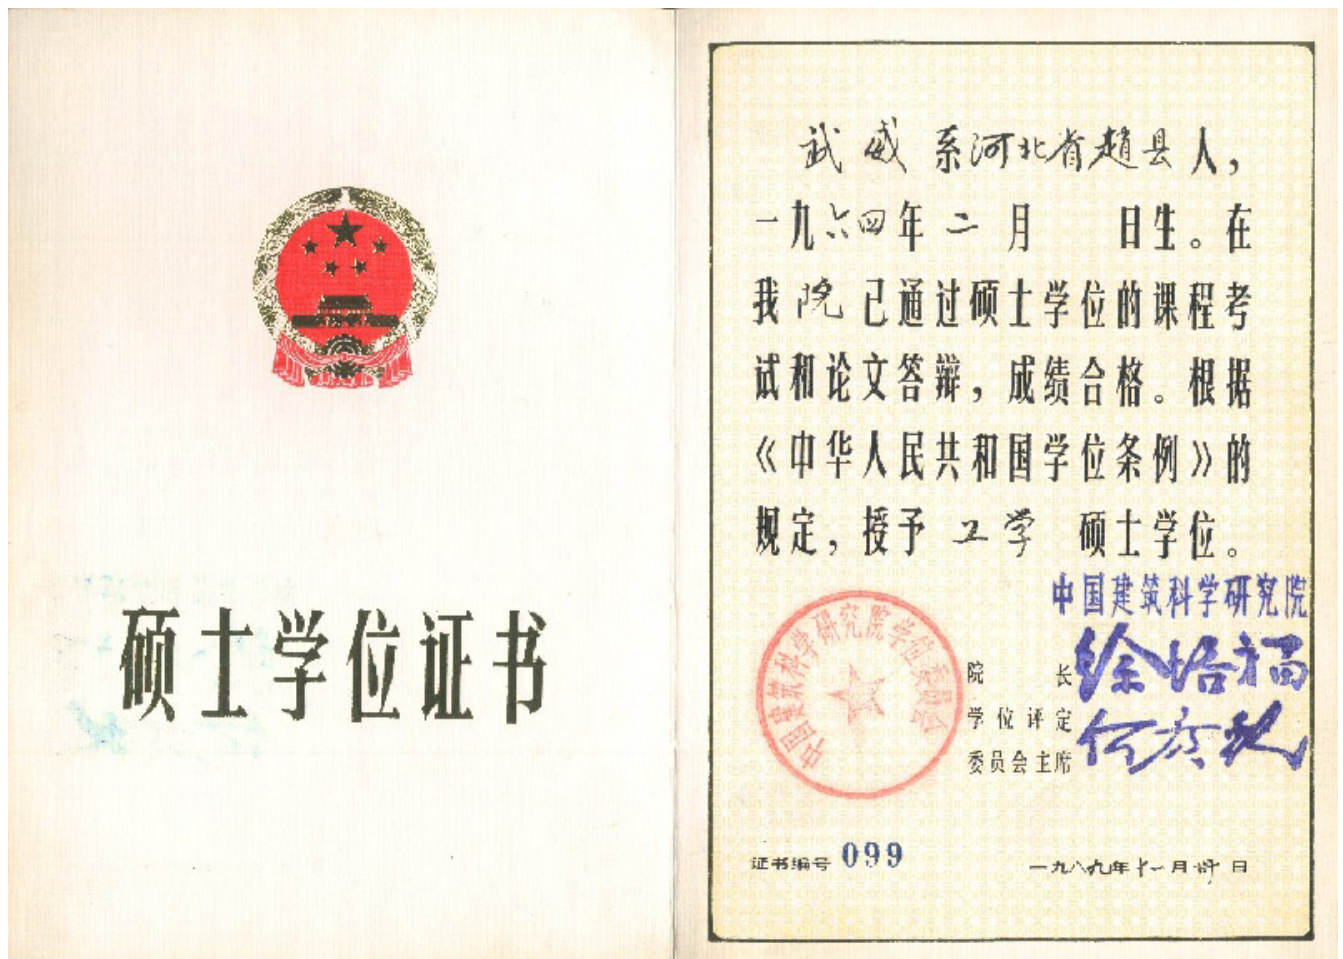 硕士学位证书
武威系河北省赵县人,
一九六四年二月 日生。在
我院已通过硕士学位的课程考
试和论文答辩,成绩合格。根据
《中华人民共和国学位条例》的
规定,授予工学 硕士学位。
中国建筑科学研究院
中国建筑科学研究院学位委员会
院 长 徐培福
学位评定
委员会主席
证书编号 099
一九八九年十一月 日